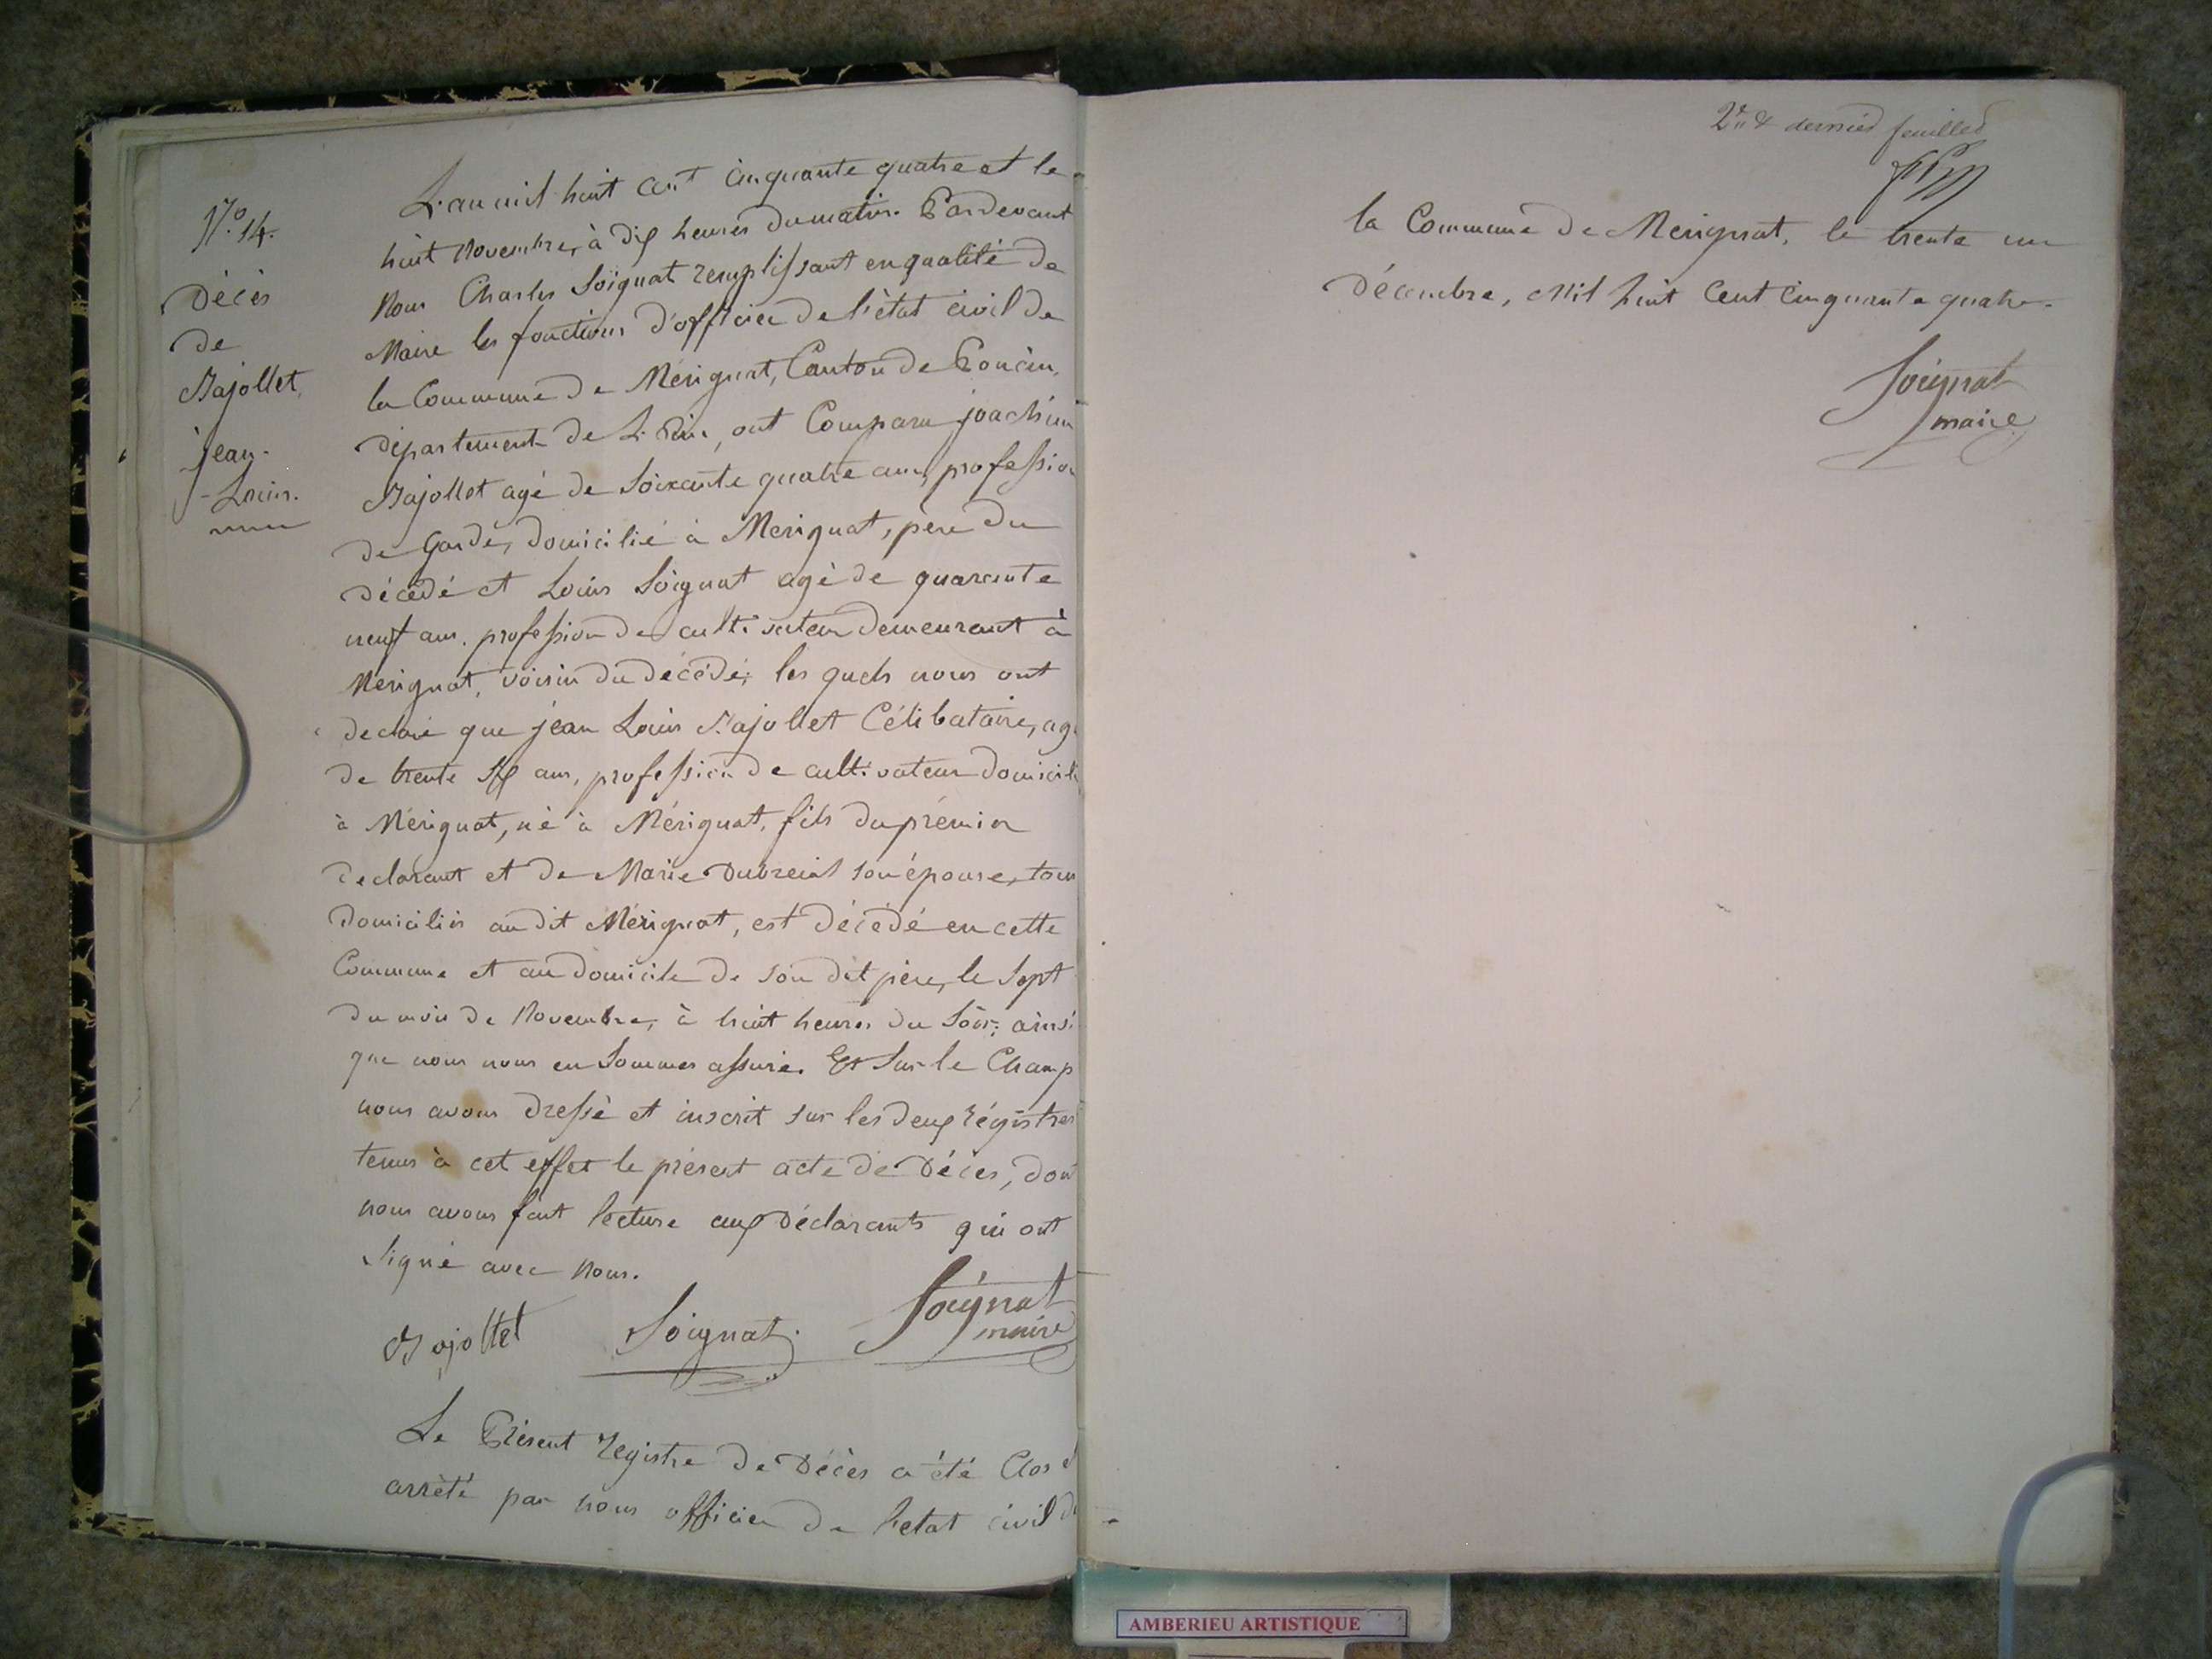 N.° 14.
Décès
de
Bajollet,
jean-
-Louis.
L'an mil huit cent cinquante quatre et le
huit Novembre, à dix heures du matin. Pardevant
Nous Charles Soignat remplissant en qualité de
Maire les fonctions d'officier de l'état civil de
la Commune de Mérignat, Canton de Poncin,
département de L'Ain, ont Comparu joachim
Bajollet agé de Soixante quatre ans, profession
de Garde, domicilié à Merignat, père du
décédé et Louis Soignat agé de quarante
neuf ans. profession de cultivateur demeurant à
Merignat, voisin du décédé; les quels nous ont
declaré que jean Louis Bajollet Célibataire, agé
de trente Six ans, profession de cultivateur domicilié
à Mérignat, né à Mérignat, fils du prémier
declarant et de Marie Dubreuil son épouse, tous
domiciliés au dit Mérignat, est décédé en cette
Commune et au domicile de son dit père, le Sept
du mois de Novembre, à huit heures du Soir; ainsi
que nous nous en Sommes assuré. Et Sur le Champ
nous avons dressé et inscrit sur les deux régistres
tenus à cet effet le présent acte de Décès, dont
nous avons fait lecture aux Déclarants qui ont
Signé avec Nous.
Bajollet Soignat. Soignat
maire
Le Présent registre de Décès a été Clos et
arrêté par nous officier de l'état civil de
2e & dernier feuillet
la Commune de Merignat, le trente un
Décembre, Mil huit Cent Cinquante quatre.
Soignat
maire
AMBERIEU ARTISTIQUE